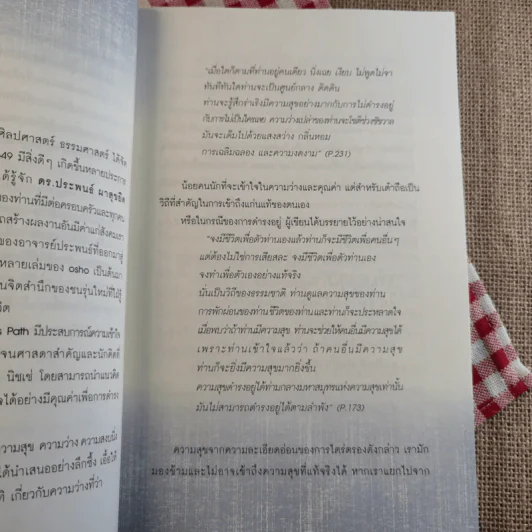 ศิลปศาสตร์ ธรรมศาสตร์ ได้จัด
49 มีสิ่งดีๆ เกิดขึ้นหลายประการ
ด้รู้จัก ดร.ประพนธ์ ผาสุขยืด
ของท่านที่มีต่อครอบครัวและทุกคน
ถสร้างผลงานอันมีค่าแก่สังคมเรา
ของอาจารย์ประพนธ์ที่ออกมาสู่
หลายเล่มของ osho เป็นต้นมา
นจิตสำนึกของชนรุ่นใหม่ที่ใฝ่รู้
วิต
s Path มีประสบการณ์ความเข้าใจ
จนศาสดาสำคัญและนักคิดที่
นิชเช่ โดยสามารถนำแนวคิด
ได้อย่างมีคุณค่าเพื่อการดำรง
วามสุข ความว่าง ความสงบนิ่ง
ด้นำเสนออย่างลึกซึ้ง เอื้อให้
ติ เกี่ยวกับความว่างที่ว่า
"เมื่อใดก็ตามที่ท่านอยู่คนเดียว นิ่งเฉย เงียบ ไม่พูดไม่จา
ทันทีทันใดท่านจะเป็นศูนย์กลาง ติดดิน
ท่านจะรู้สึกร่าเริงมีความสุขอย่างมากกับการไม่ดำรงอยู่
กับการไม่เป็นใครเลย ความว่างเปล่าของท่านจะโชติช่วงชัชวาล
มันจะเต็มไปด้วยแสงสว่าง กลิ่นหอม
การเฉลิมฉลอง และความงดงาม" (P.231)
น้อยคนนักที่จะเข้าใจในความว่างและคุณค่า แต่สำหรับเต๋าถือเป็น
วิถีที่สำคัญในการเข้าถึงแก่นแท้ของตนเอง
หรือในกรณีของการดำรงอยู่ ผู้เขียนได้บรรยายไว้อย่างน่าสนใจ
"จงมีชีวิตเพื่อตัวท่านเองแล้วท่านก็จะมีชีวิตเพื่อคนอื่นๆ
แต่ต้องไม่ใช่การเสียสละ จงมีชีวิตเพื่อตัวท่านเอง
จงทำเพื่อตัวเองอย่างแท้จริง
นั่นเป็นวิถีของธรรมชาติ ท่านดูแลความสุขของท่าน
การพักผ่อนของท่านชีวิตของท่านและท่านก็จะประหลาดใจ
เมื่อพบว่าถ้าท่านมีความสุข ท่านจะช่วยให้คนอื่นมีความสุขได้
เพราะท่านเข้าใจแล้วว่า ถ้าคนอื่นมีความสุข
ท่านก็จะยิ่งมีความสุขมากยิ่งขึ้น
ความสุขดำรงอยู่ได้ท่ามกลางมหาสมุทรแห่งความสุขเท่านั้น
มันไม่สามารถดำรงอยู่ได้ตามลำพัง" (P.173)
ความสุขจากความละเอียดอ่อนของการไตร่ตรองดังกล่าว เรามัก
มองข้ามและไม่อาจเข้าถึงความสุขที่แท้จริงได้ หากเราแยกไปจาก